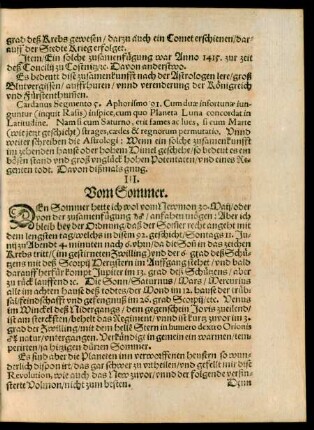 grad deß Krebs gewesen / darzu auch ein Comet erschienen / dar-
auff der Stedte Krieg erfolget.
Item / Ein solche zusamenfügung war Anno 1415. zur zeit
deß Concilii zu Costnitz / etc. Davon anderstwo.
Es bedeut diß zusamenkunfft nach der Astrologen lere / groß
Blutvergissen / auffrhuren / unnd verenderung der Königreich
und Fürstenthumen.
Cardanus Segmento 5. Aphorismo 93. Cum duæ infortunæ iun-
guntur (inquit Rasis) inspice, cum quo Planeta Luna concordat in
Latitudine. Nam si cum Saturno, erit fames ac lues, si cum Marte
(wie jetzt geschicht) strages, cædes & regnorum permutatio. Unnd
weiter schreiben die Astrologi: Wenn ein solche zusamenkunfft
im zehenden hauß oder hohem Himel geschicht / so bedeut es ein
bösen stand und groß unglück hohen Potentaten / und eines Re-
genten todt. Davon dißmals gnug.
III.
Vom Sommer.
DEn Sommer hette ich wol vom Newmon 30. Maij / oder
von der zusamenfügung ♂♄ / anfaben mögen: Aber ich
bleib bey der Ordnung / daß der Sommer recht angehet mit
dem lengsten tag / welchs in disem 92. geschicht / Sontags 11. Ju-
nij zu Abendt 4. minuten nach 6. vhrn / da die Sonn in das zeichen
Krebs tritt / (im gestirneten Zwilling) vnd der 6. grad deß Schü-
tzens mit deß Scorpij Hertzstern im Auffgang stehet / vnd bald
darauff herfür kompt Jupiter im 12. grad deß Schützens / aber
zu rück lauffend / etc. Die Sonn / Saturnus / Mars / Mercurius
alle im achten hauß deß todtes / der Mond im 12. hauß der trüb-
sal / feindschafft vnd gefengnuß im 26. grad Scorpij / etc. Venus
im Winckel deß Nidergangs / dem gegenschein Jovis zueilend /
ist am sterckesten / behelt das Regiment / vnnd ist kurtz zuvor im 3.
grad der Zwilling / mit dem hellē Stern in humero dextro Orionis
♂♀ natur / vntergangen. Verkündigt in gemein ein warmen / tem-
perirten / ja hitzigen dürren Sommer.
Es sind aber die Planeten inn verworffenen heusern so wun-
derlich disponirt / das gar schwer zu vrtheilen / vnd gefellt mir dise
Revolution / wie auch das New zuvor / vnnd der folgende verfin-
sterte Volmon / nicht zum besten.
Denn